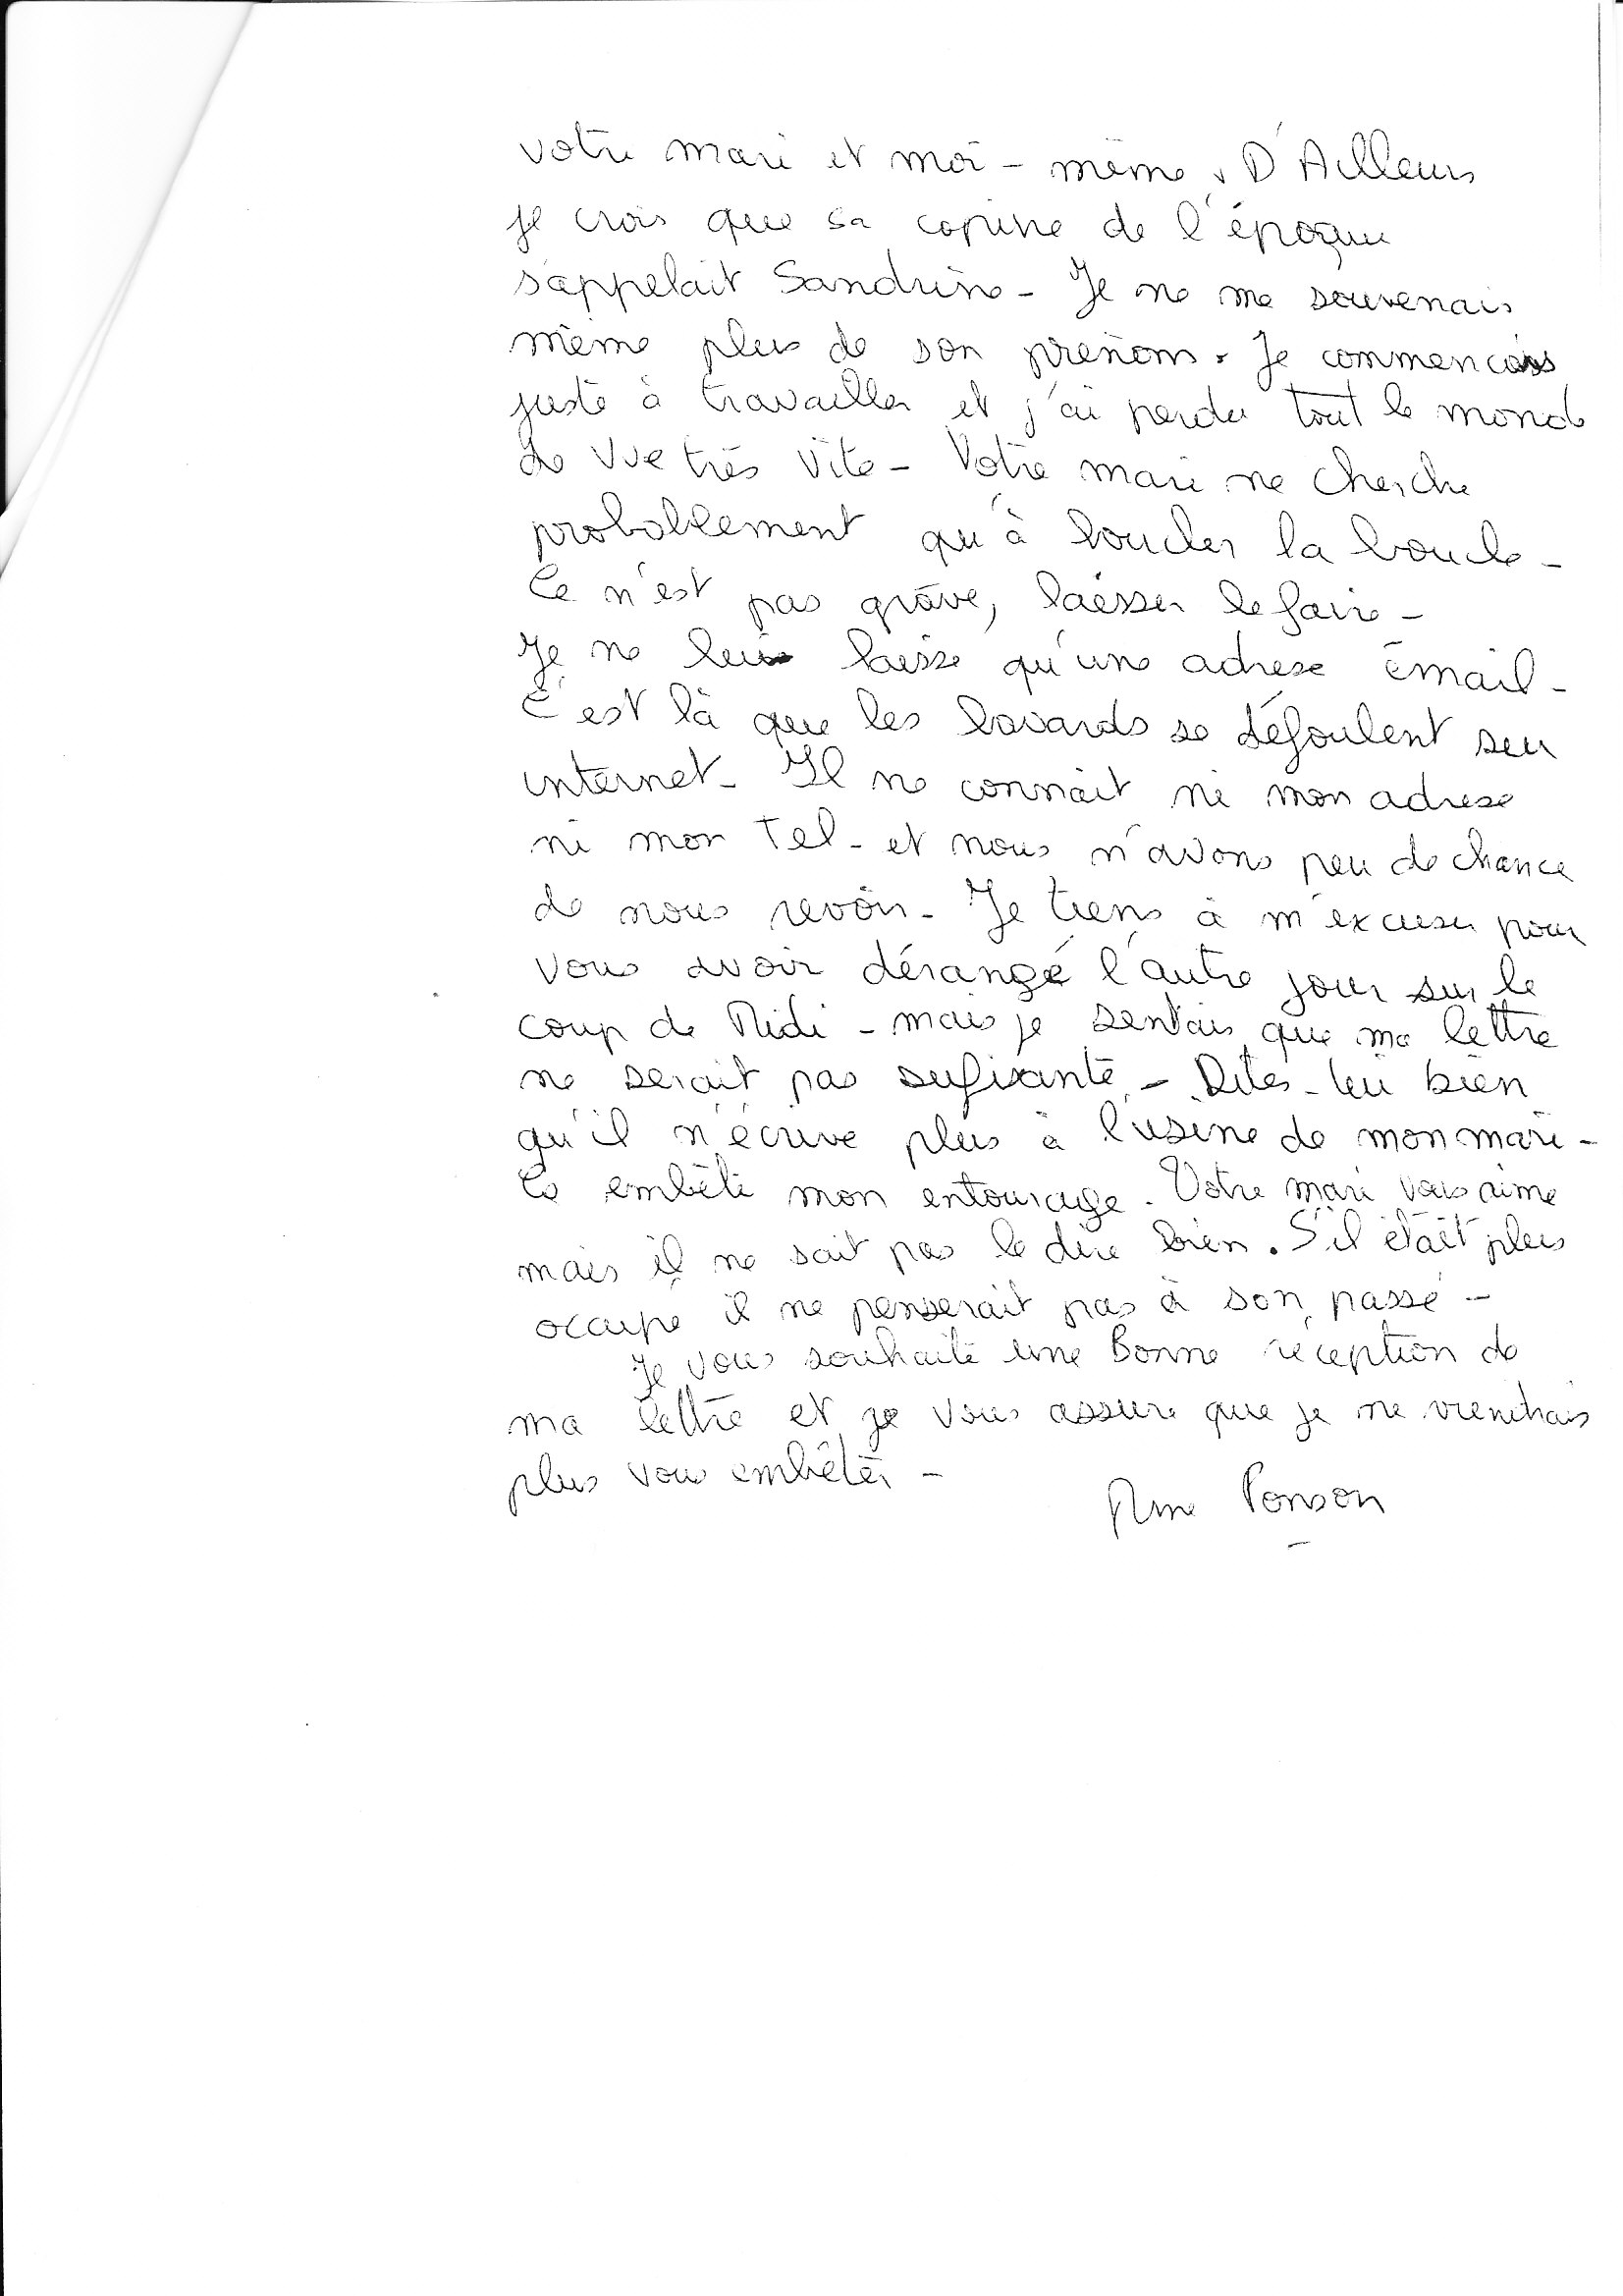 votre mari et moi-même. D'Ailleurs
je crois que sa copine de l'époque
s'appelait Sandrine - Je ne me souvenais
même plus de son prénom. Je commencais
juste à travailler et j'ai perdu tout le monde
de vue très vite - Votre mari ne cherche
probablement qu'à boucler la boucle -
Ce n'est pas grave, laisser le faire -
Je ne lui laisse qu'une adresse émail -
C'est là que les bavards se défoulent sur
internet - Il ne connait ni mon adresse
ni mon Tel - et nous n'avons peu de chance
de nous revoir - Je tiens à m'excuser pour
vous avoir dérangé l'autre jour sur le
coup de Midi - mais je sentais que ma lettre
ne serait pas sufisante - Dites-lui bien
qu'il n'écrive plus à l'usine de mon mari -
Ca embête mon entourage. Votre mari vous aime
mais il ne sait pas le dire bien. S'il était plus
occupé il ne penserait pas à son passé -
Je vous souhaite une Bonne réception de
ma lettre et je vous assure que je ne viendrais
plus vous embêter -
Mme Ponson